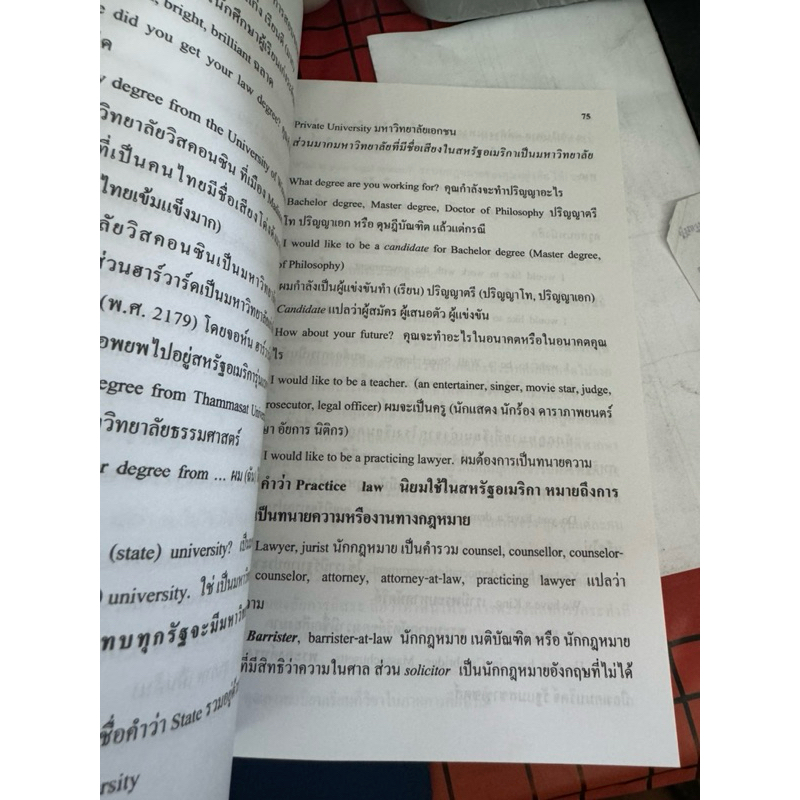 did you get your law degree?
bright, brilliant ฉลาด
degree from the University of
วิทยาลัยวิสคอนซิน ที่เมือง
ที่เป็นคนไทยมีชื่อเสียงโด่งดัง
ไทยเข้มแข็งมาก)
ลัยวิสคอนซินเป็นมหาวิทยาลัย
ส่วนฮาร์วาร์ดเป็นมหาวิทยาลัย
(พ.ศ. 2179) โดยจอห์น
อพยพไปอยู่สหรัฐอเมริการุ่น
egree from Thammasat
าวิทยาลัยธรรมศาสตร์
r degree from ... ผม
(state) university?
university. ใช่ เป็น
ทบทุกรัฐจะมีมหา
ชื่อคำว่า State รวมอยู่
rsity
75
Private University มหาวิทยาลัยเอกชน
ส่วนมากมหาวิทยาลัยที่มีชื่อเสียงในสหรัฐอเมริกาเป็นมหาวิทยาลัย
What degree are you working for? คุณกำลังจะทำปริญญาอะไร
Bachelor degree, Master degree, Doctor of Philosophy ปริญญาตรี
โท ปริญญาเอก หรือ ดุษฎีบัณฑิต แล้วแต่กรณี
I would like to be a candidate for Bachelor degree (Master degree,
of Philosophy)
ผมกำลังเป็นผู้แข่งขันทำ (เรียน) ปริญญาตรี (ปริญญาโท, ปริญญาเอก)
Candidate แปลว่าผู้สมัคร ผู้เสนอตัว ผู้แข่งขัน
How about your future? คุณจะทำอะไรในอนาคตหรือในอนาคตคุณ
ไร
I would like to be a teacher. (an entertainer, singer, movie star, judge,
rosecutor, legal officer) ผมจะเป็นครู (นักแสดง นักร้อง ดาราภาพยนตร์
ษา อัยการ นิติกร)
I would like to be a practicing lawyer. ผมต้องการเป็นทนายความ
คำว่า Practice law นิยมใช้ในสหรัฐอเมริกา หมายถึงการ
เป็นทนายความหรืองานทางกฎหมาย
Lawyer, jurist นักกฎหมาย เป็นคำรวม counsel, counsellor, counselor-
counselor, attorney, attorney-at-law, practicing lawyer แปลว่า
วาม
Barrister, barrister-at-law นักกฎหมาย เนติบัณฑิต หรือ นักกฎหมาย
ที่มีสิทธิว่าความในศาล ส่วน solicitor เป็นนักกฎหมายอังกฤษที่ไม่ได้